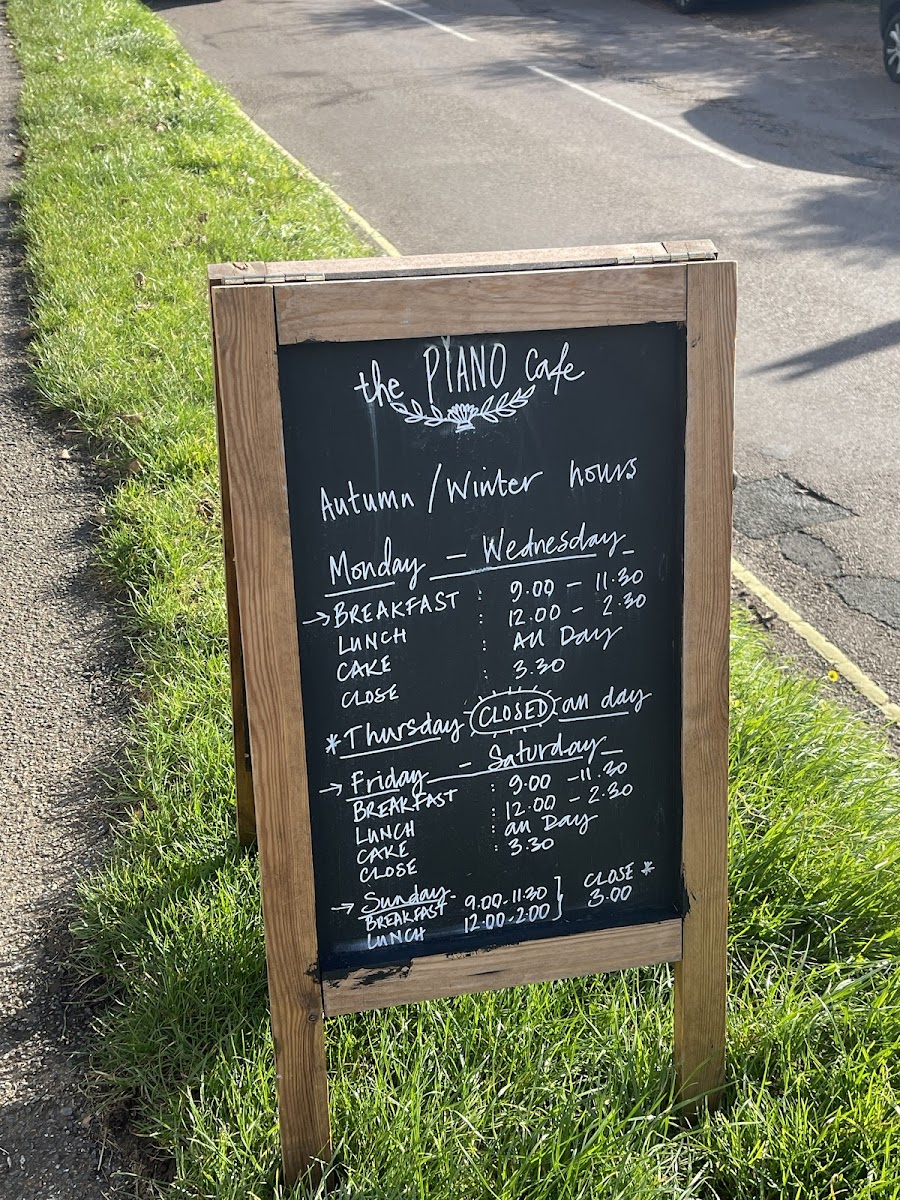 the PIANO Cafe
Autumn / Winter hours
Monday - Wednesday -
→ BREAKFAST : 9.00 - 11.30
LUNCH : 12.00 - 2.30
CAKE : All Day
CLOSE : 3.30
* Thursday CLOSED all day
→ Friday - Saturday -
BREAKFAST : 9.00 - 11.30
LUNCH : 12.00 - 2.30
CAKE : all Day
CLOSE : 3.30
→ Sunday -
BREAKFAST 9.00-11.30 } CLOSE *
LUNCH 12.00-2.00 3.00